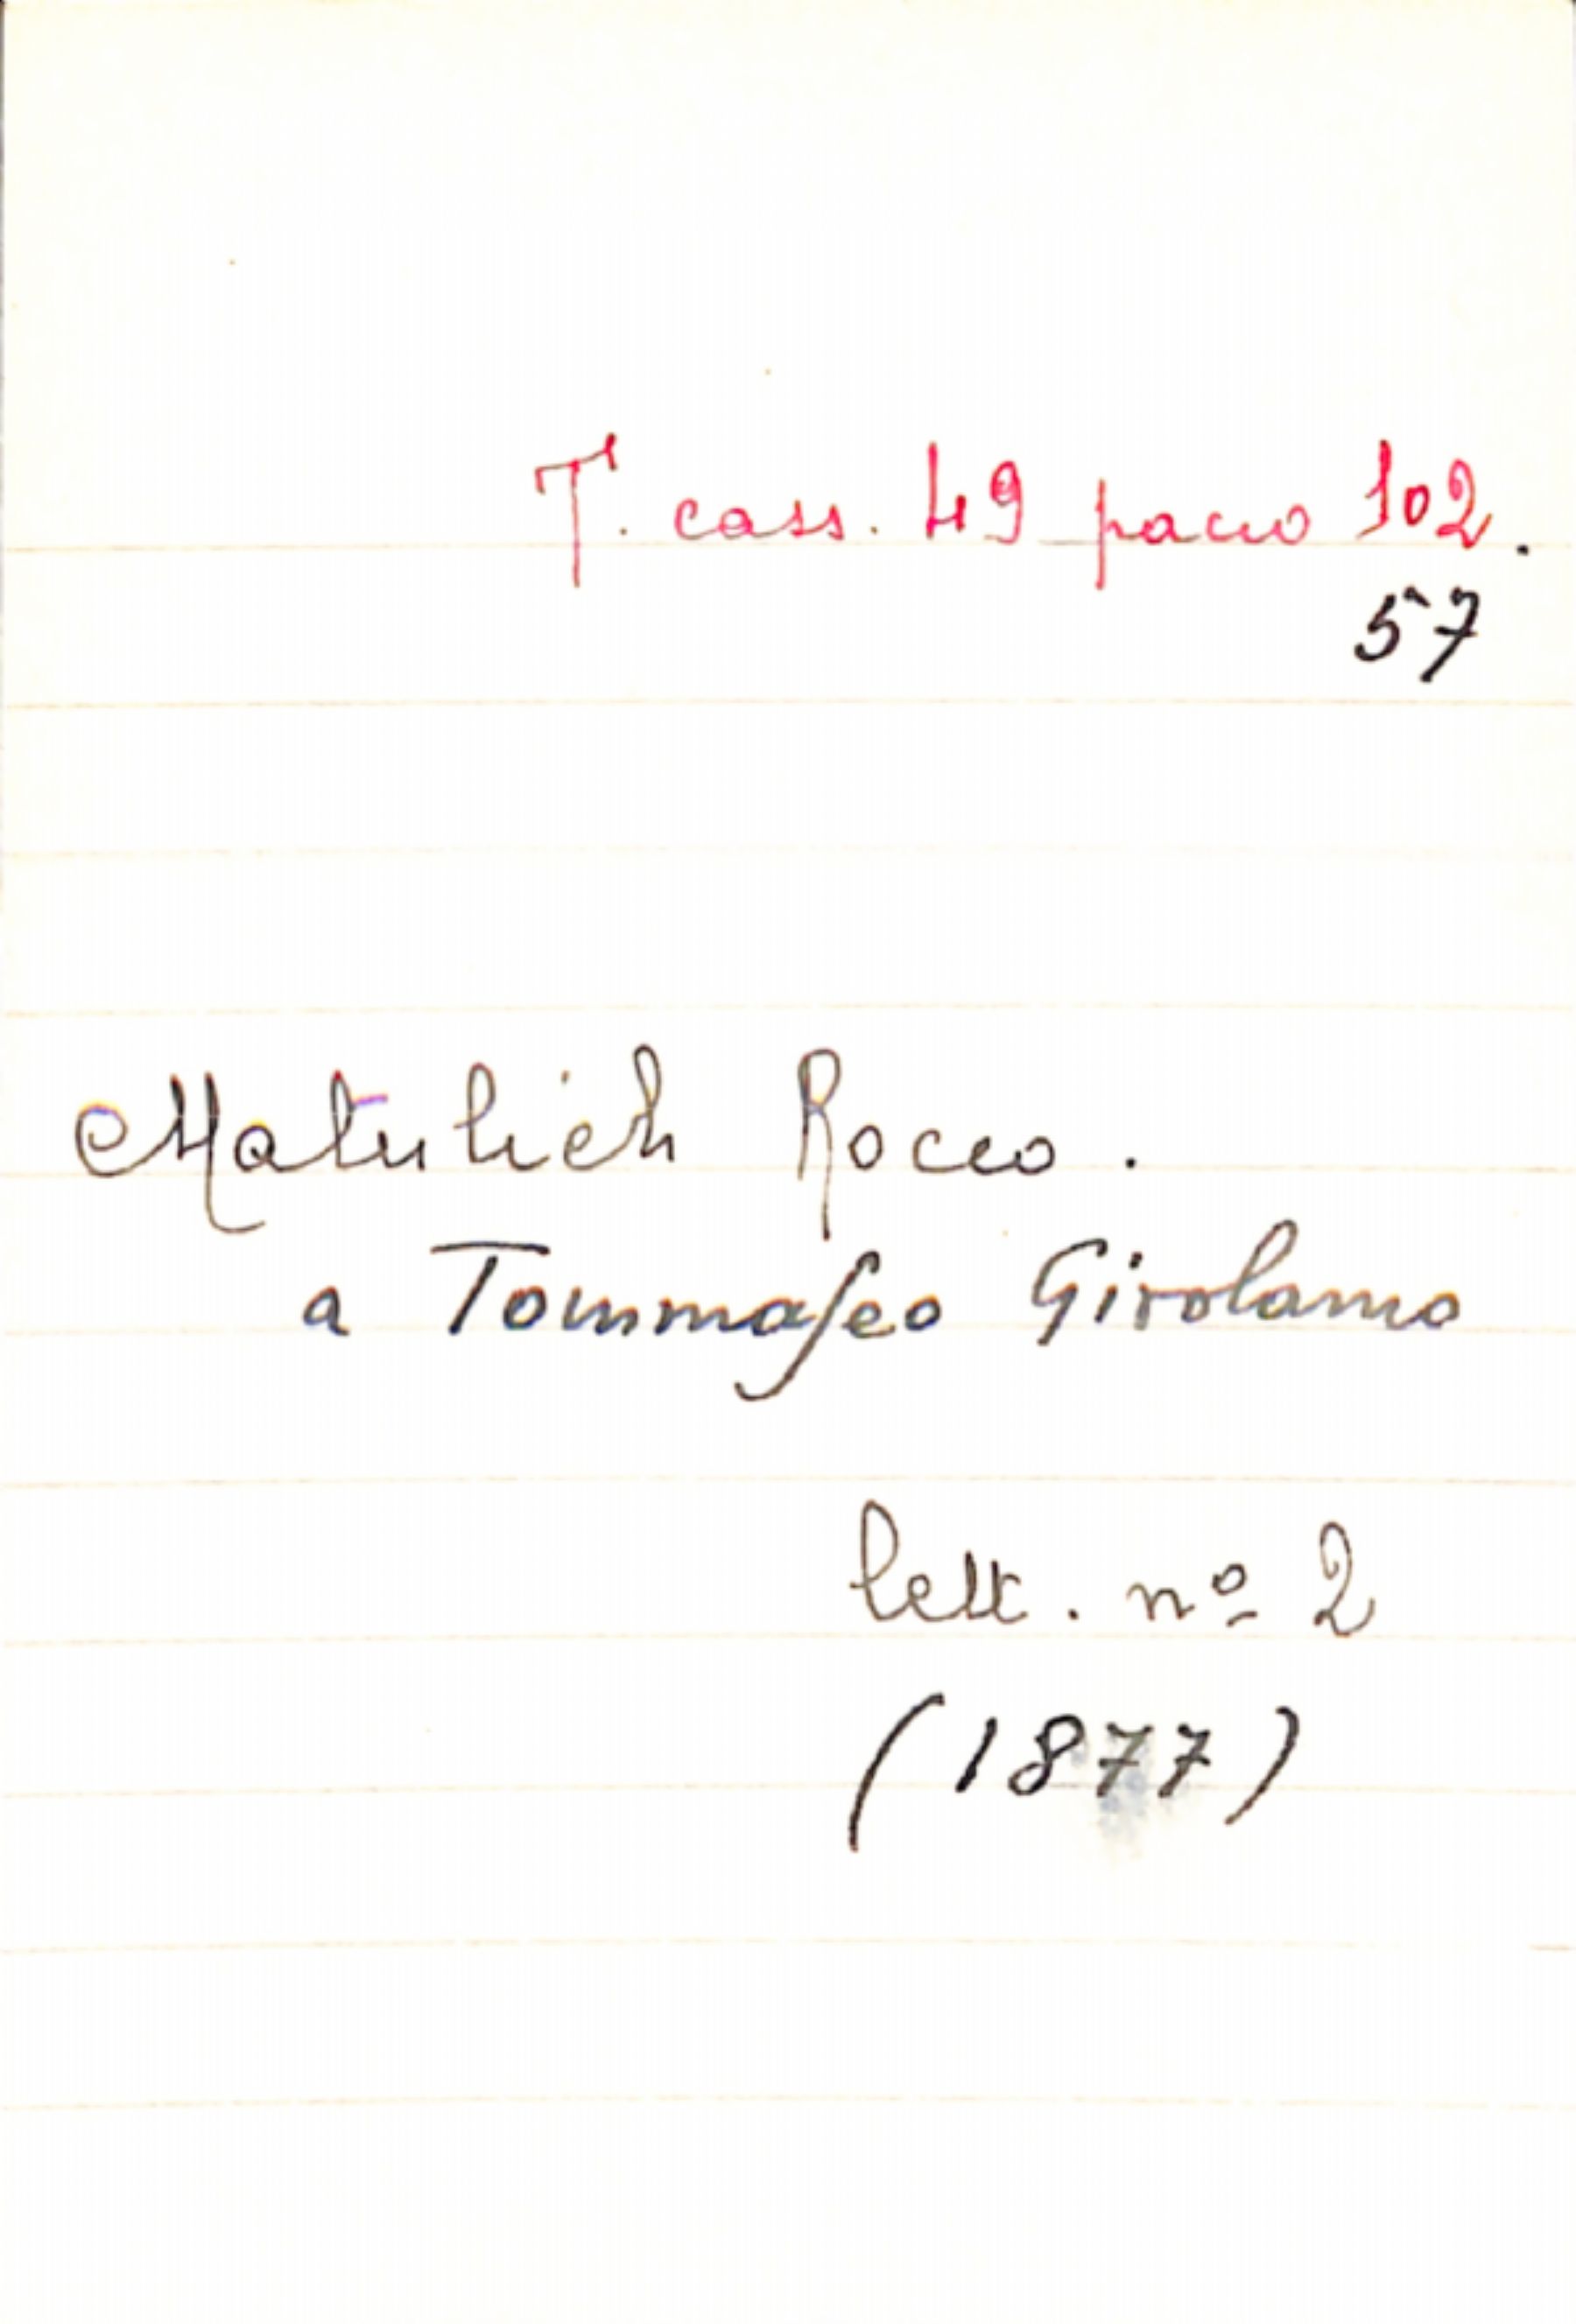 T. cass. 49 pacco 102.
57
Matulich Rocco.
a Tommaseo Girolamo
lett. nº 2
(1877)